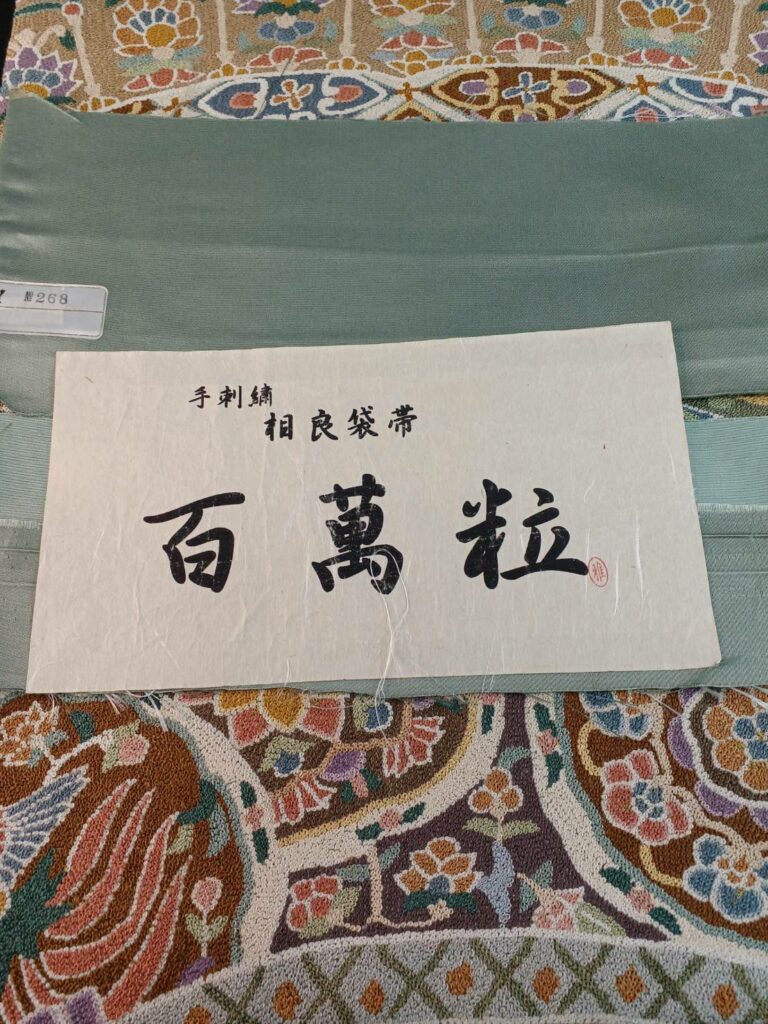 268
手刺繍
相良袋帯
百萬粒
雅